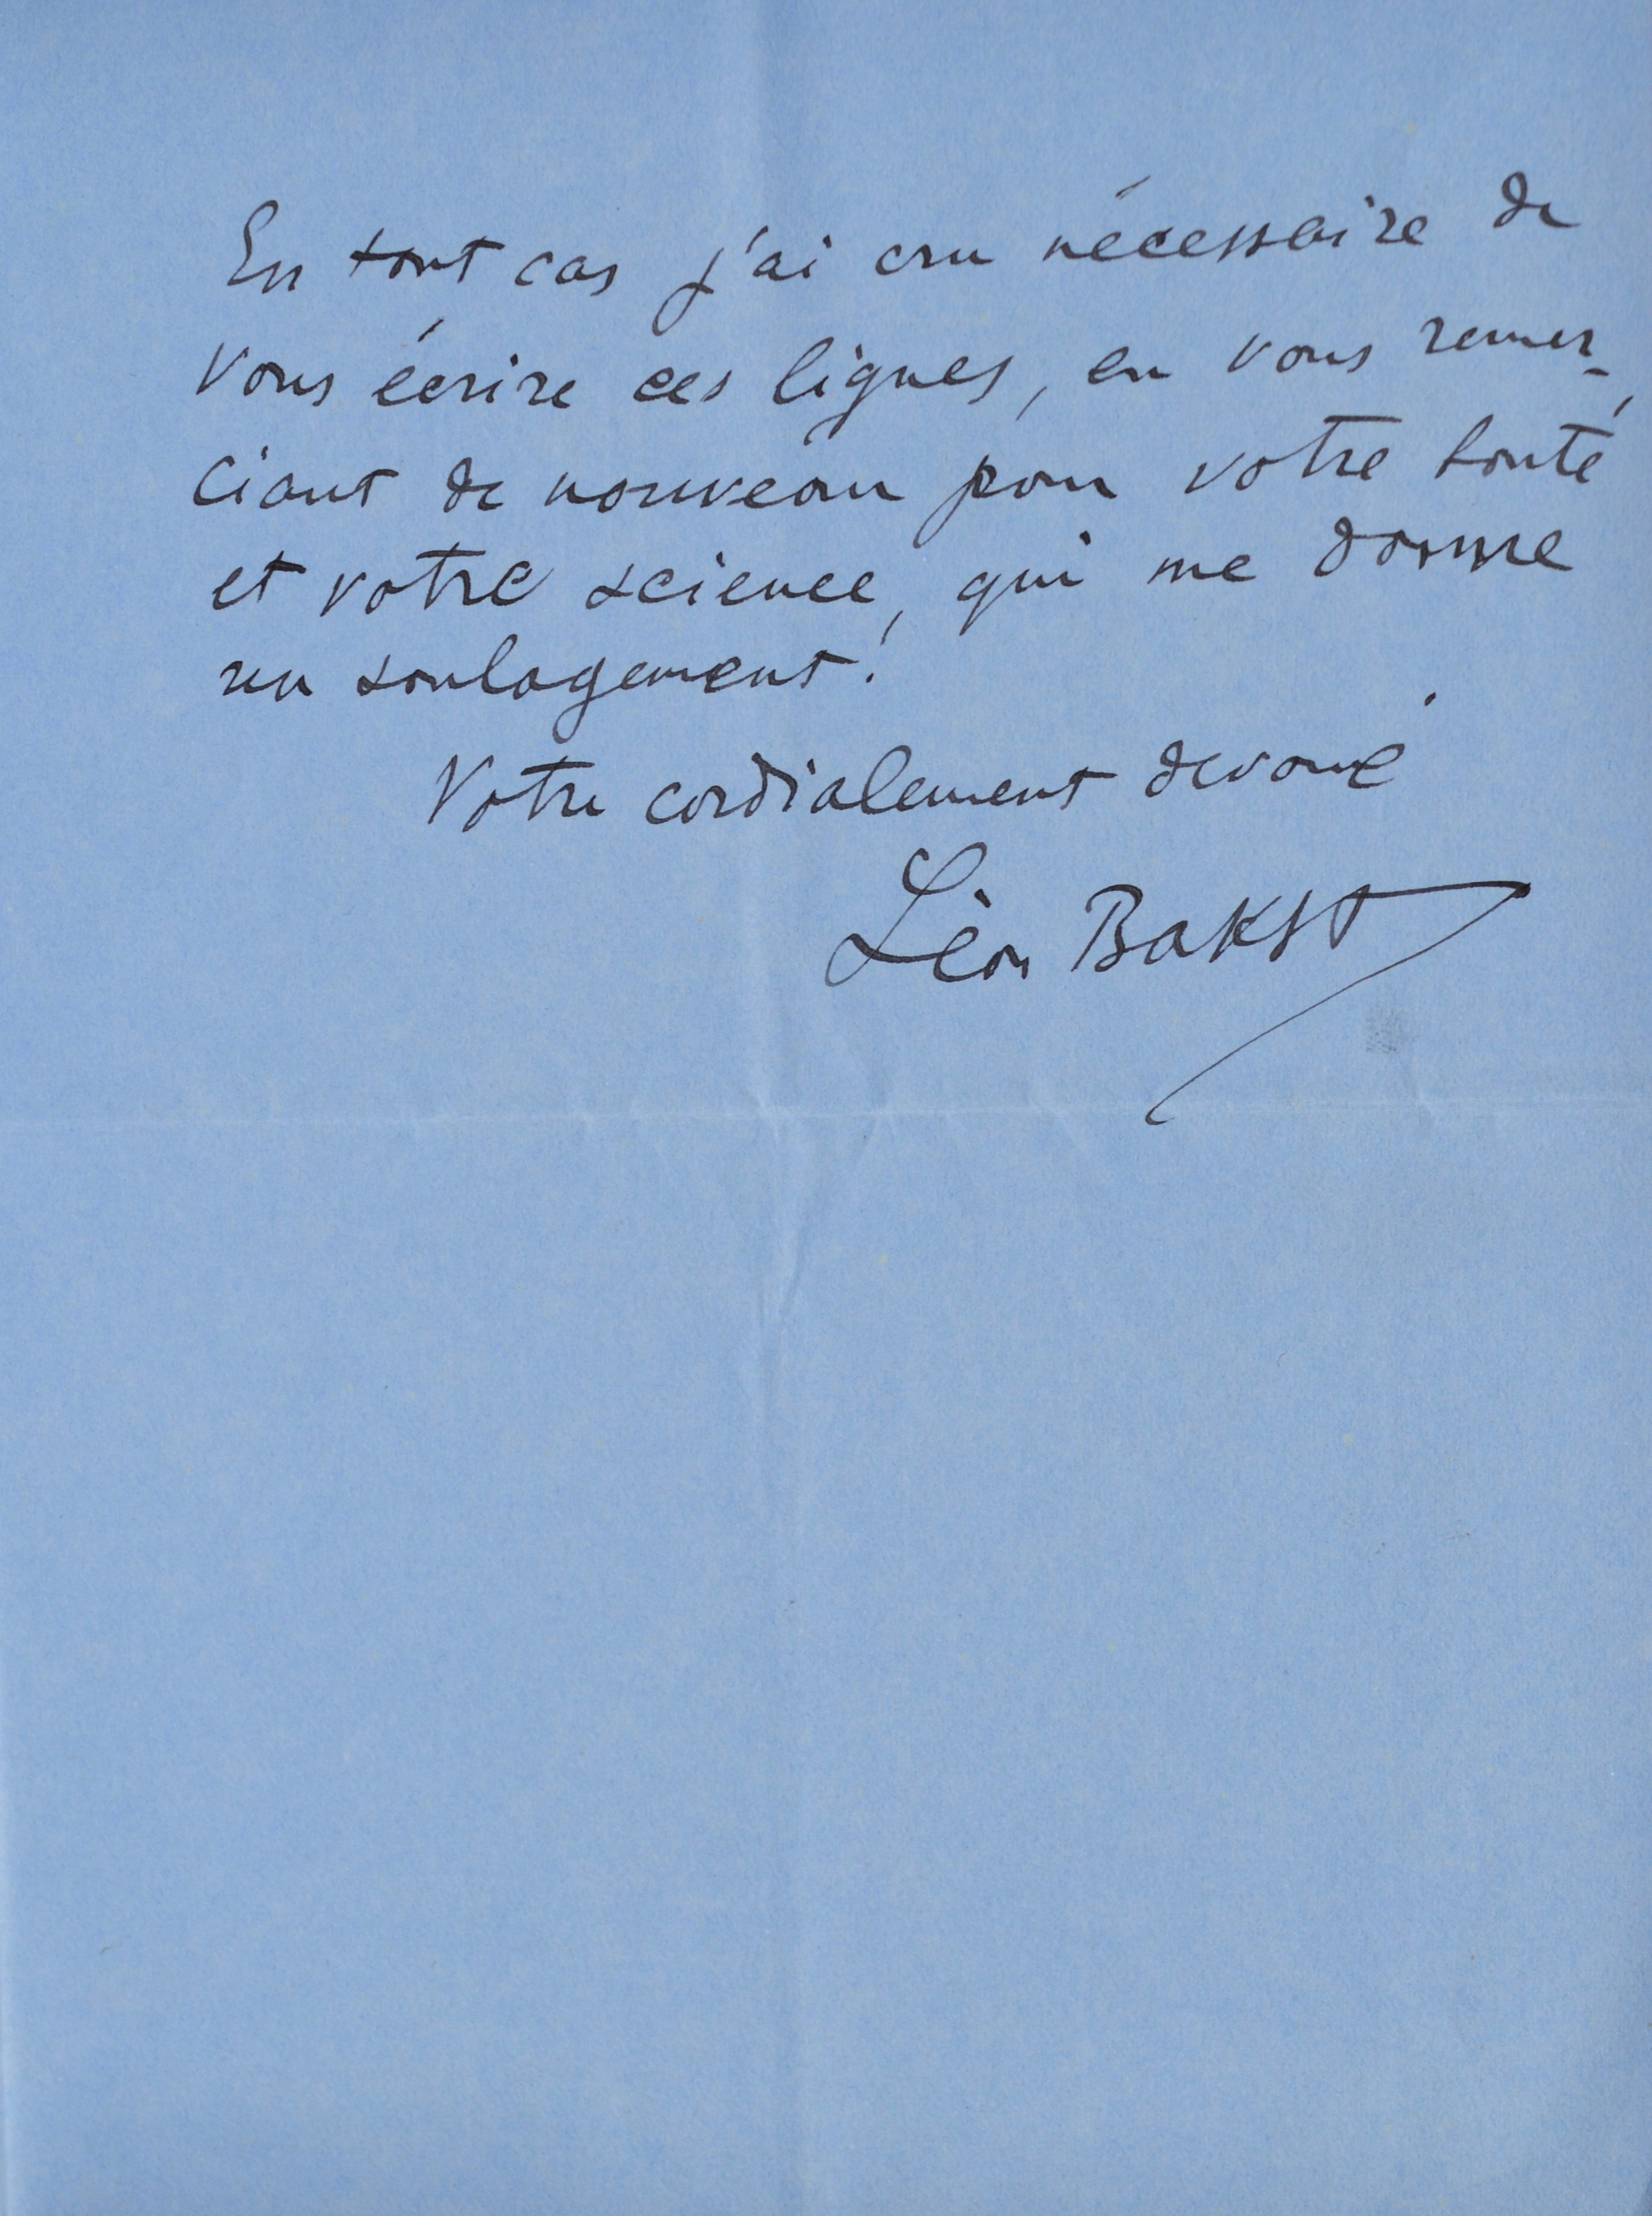 En tout cas j'ai cru nécessaire de
vous écrire ces lignes, en vous remer-
ciant de nouveau pour votre bonté
et votre science, qui me donne
un soulagement!
Votre cordialement devoué
Léon Bakst